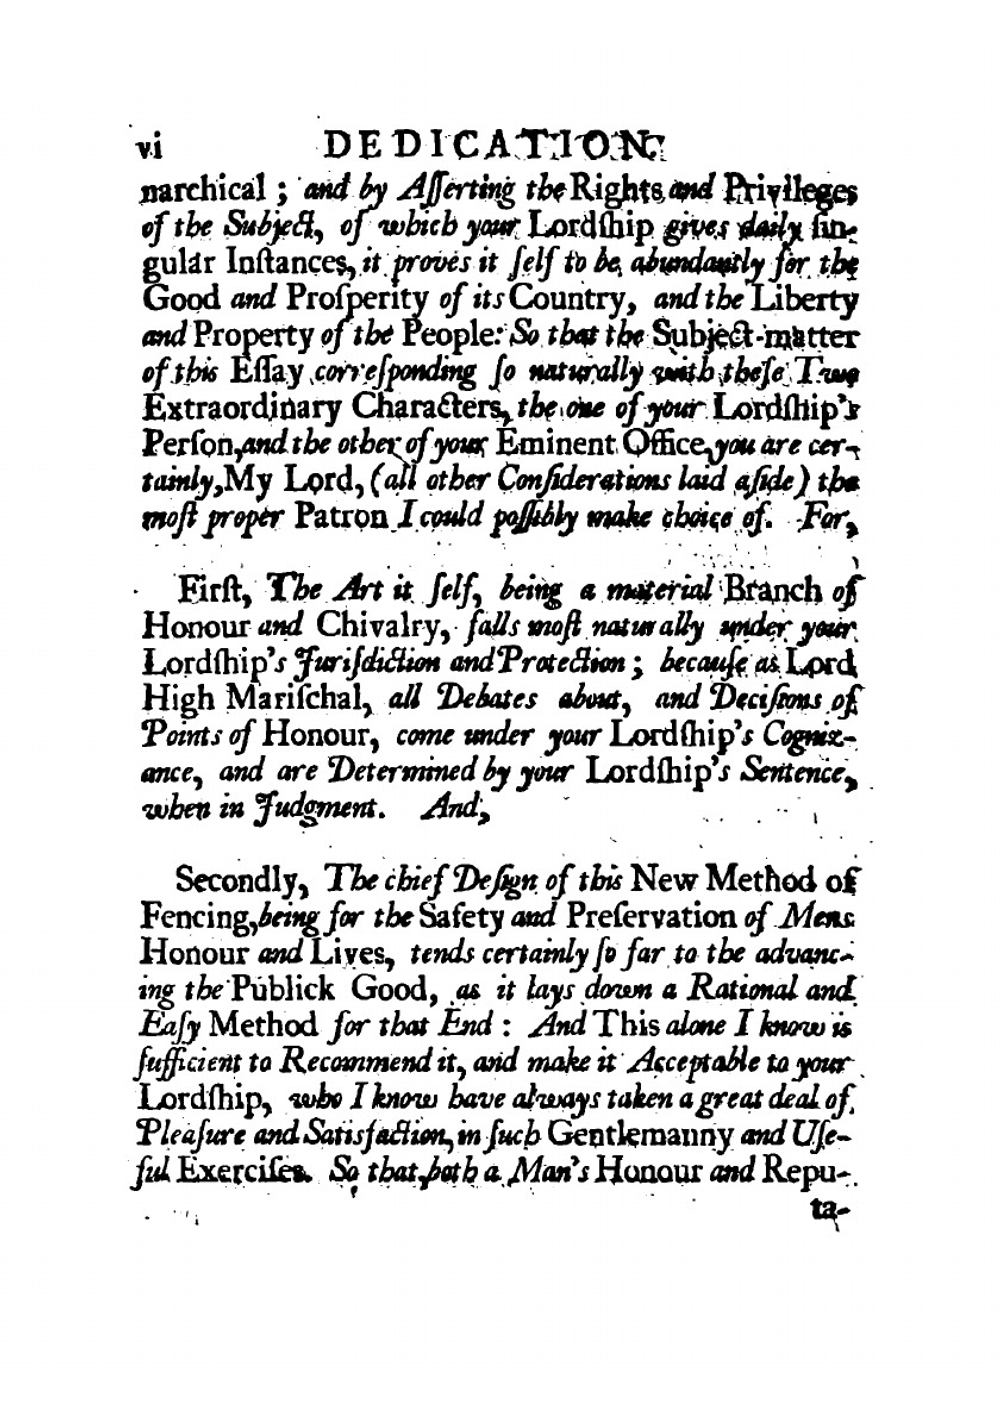 vi DEDICATION.
narchical ; and by Aſſerting the Rights and Privileges
of the Subject, of which your Lordſhip gives daily ſin-
gular Inſtances, it proves it ſelf to be, abundantly for the
Good and Proſperity of its Country, and the Liberty
and Property of the People: So that the Subject-matter
of this Eſſay correſponding ſo naturally with theſe Two
Extraordinary Characters, the one of your Lordſhip's
Perſon, and the other of your Eminent Office, you are cer-
tainly, My Lord, (all other Conſiderations laid aſide) the
moſt proper Patron I could poſſibly make choice of. For,
Firſt, The Art it ſelf, being a material Branch of
Honour and Chivalry, falls moſt naturally under your
Lordſhip's Juriſdiction and Protection ; becauſe as Lord
High Mariſchal, all Debates about, and Deciſions of
Points of Honour, come under your Lordſhip's Cogniz-
ance, and are Determined by your Lordſhip's Sentence,
when in Judgment. And,
Secondly, The chief Deſign of this New Method of
Fencing, being for the Safety and Preſervation of Mens
Honour and Lives, tends certainly ſo far to the advanc-
ing the Publick Good, as it lays down a Rational and
Eaſy Method for that End : And This alone I know is
ſufficient to Recommend it, and make it Acceptable to your
Lordſhip, who I know have always taken a great deal of
Pleaſure and Satisfaction, in ſuch Gentlemanny and Uſe-
ful Exerciſes. So that both a Man's Honour and Repu-
ta-